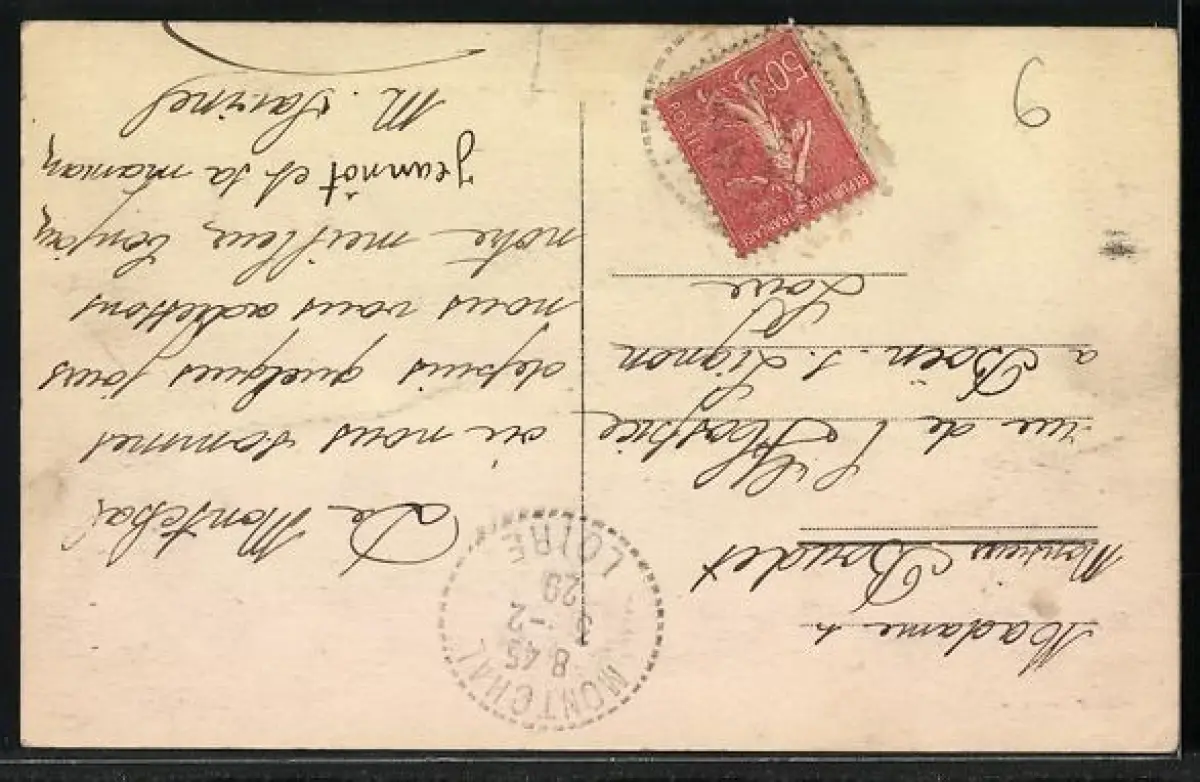 De Montchal
où nous sommes
depuis quelques jours
nous vous adressons
notre meilleur bonjour
Jeannot et sa maman
M. Savinel
Madame &
Monsieur Brudet
rue de l'Hospice
a Boën s. Lignon
Loire
MONTCHAL
8 45
5 -2
29
LOIRE
50
REPUBLIQUE FRANCAISE
9